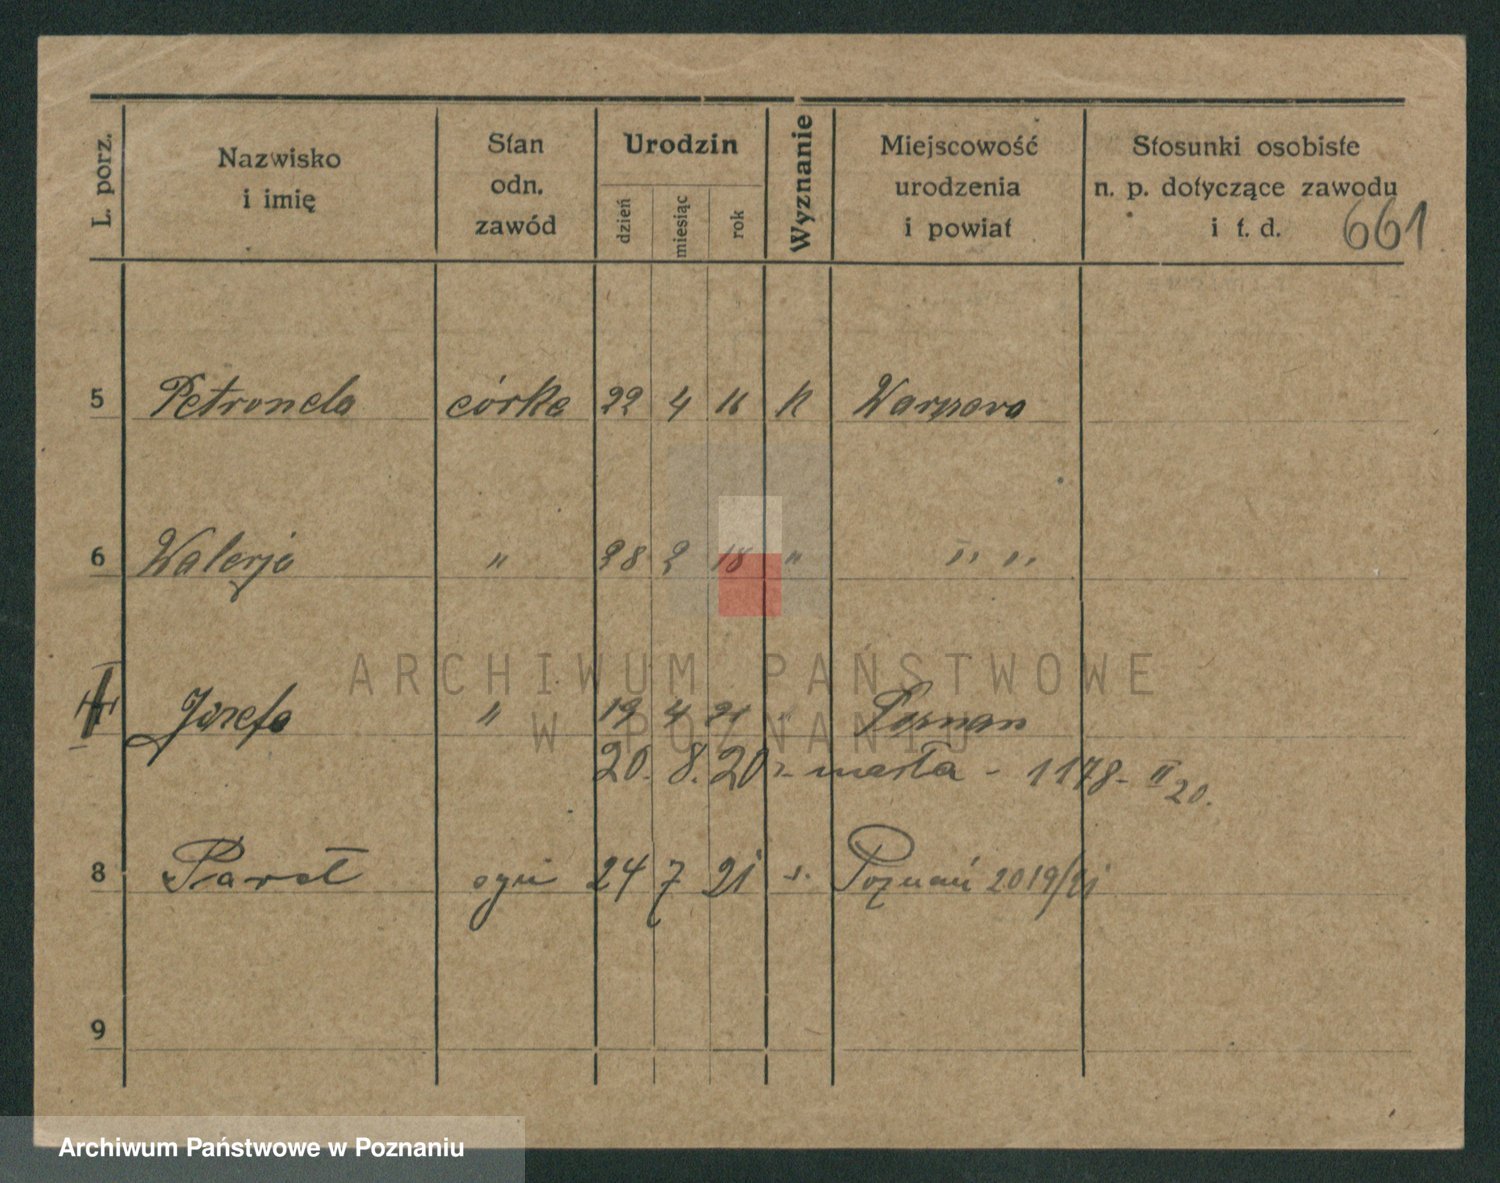 L. porz.
Nazwisko i imię
Stan odn. zawód
Urodzin
dzień miesiąc rok
Wyznanie
Miejscowość urodzenia i powiat
Stosunki osobiste n. p. dotyczące zawodu i t. d.
661
5 Petronela córka 22 4 16 k
6 Walerja " 28 2 18 " " "
Józefa " 19 4 "
20. 8. 20 zmarła - 1178 - II 20.
8 Paweł syn 24 7 21 Poznań 2019/21
9
ARCHIWUM PAŃSTWOWE
W POZNANIU
Archiwum Państwowe w Poznaniu